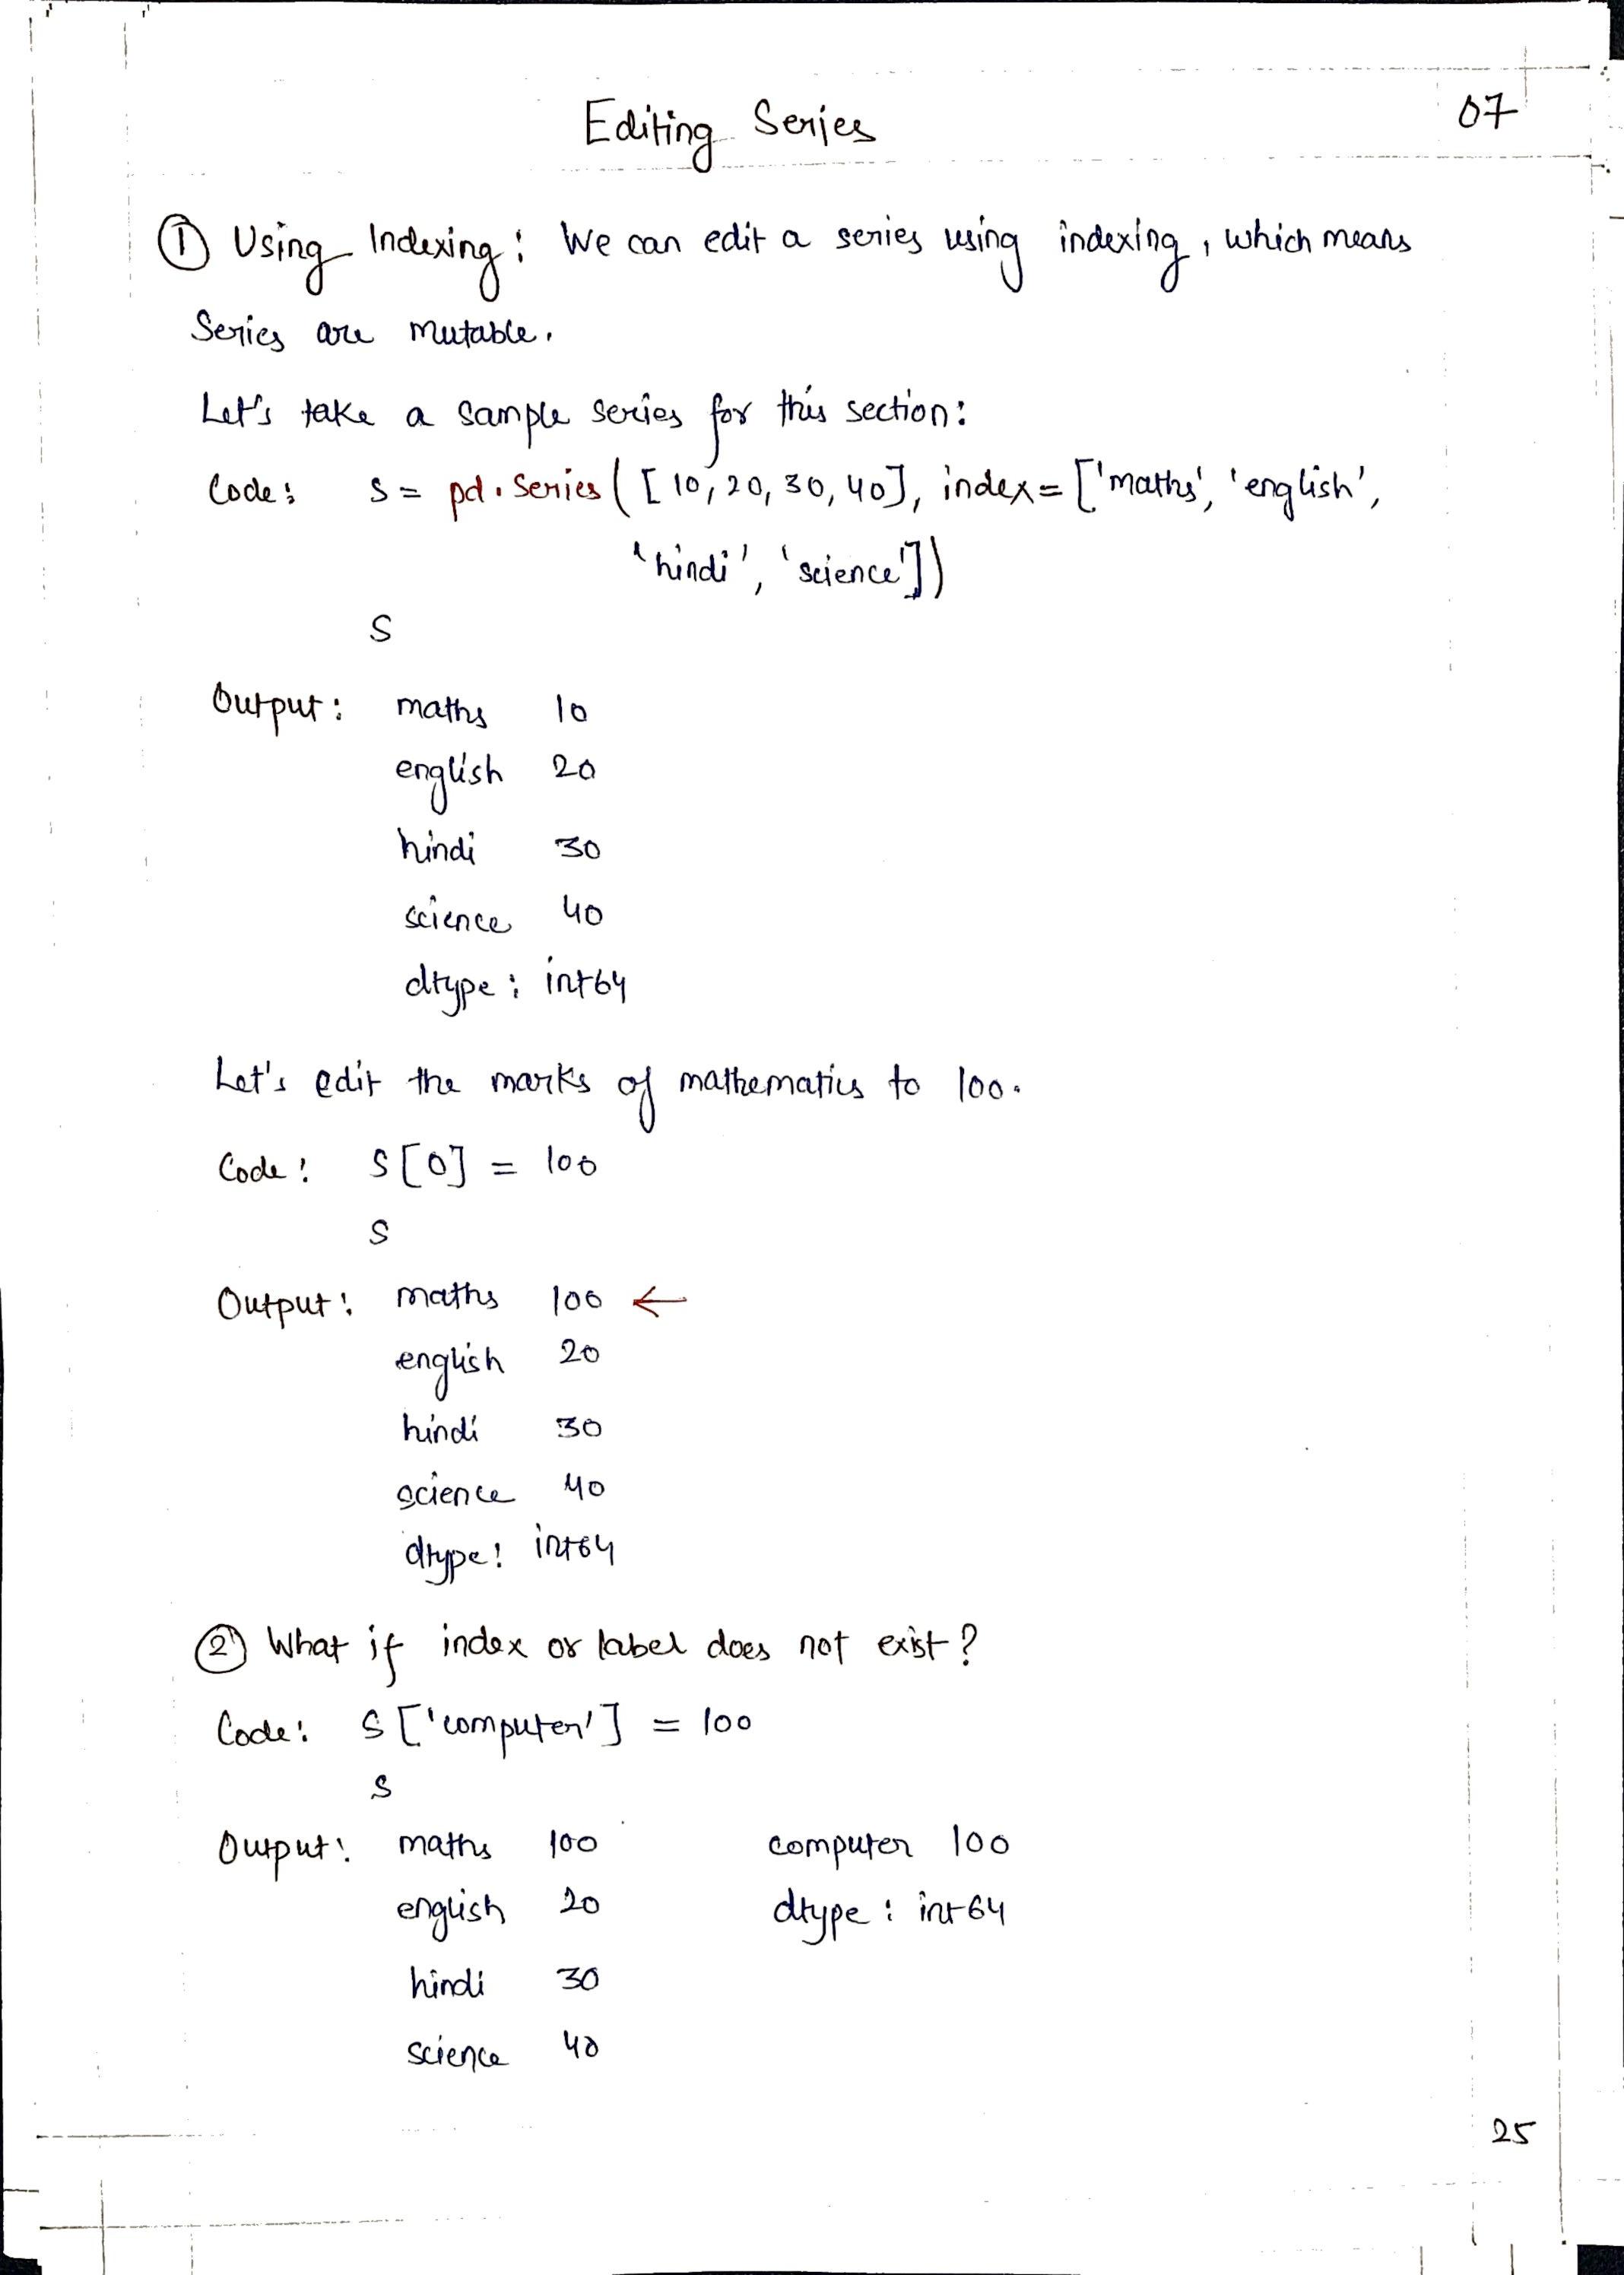 Editing Series
07
① Using Indexing: We can edit a series using indexing, which means
Series are mutable.
Let's take a sample series for this section:
Code: S = pd.Series([10, 20, 30, 40], index=['maths', 'english',
'hindi', 'science'])
S
Output: maths 10
english 20
hindi 30
science 40
dtype: int64
Let's edit the marks of mathematics to 100.
Code: S[0] = 100
S
Output: maths 100 ←
english 20
hindi 30
science 40
dtype: int64
② What if index or label does not exist?
Code: S['computer'] = 100
S
Output: maths 100 computer 100
english 20 dtype: int64
hindi 30
science 40
25